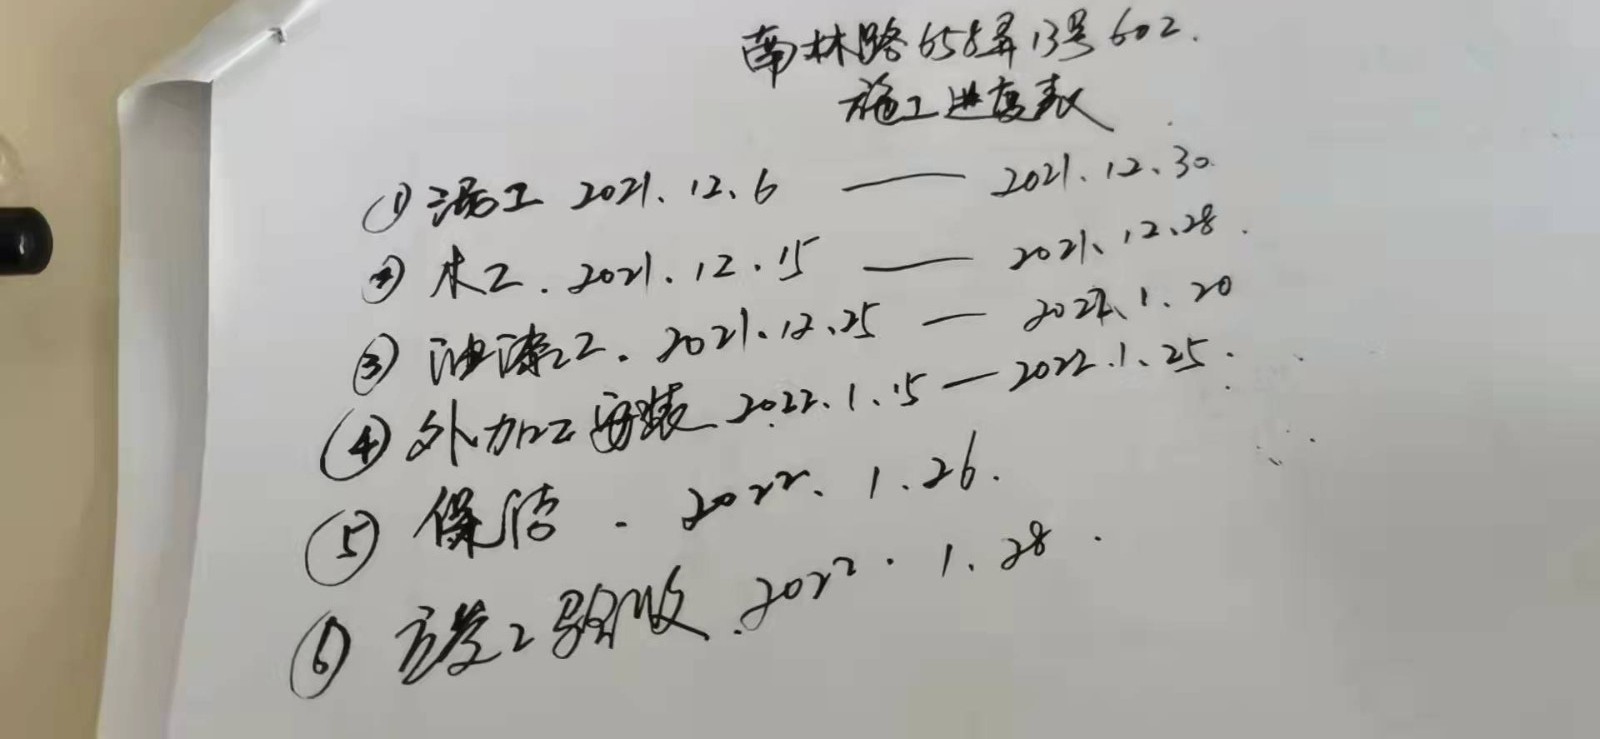 南林路658弄13号602.
施工进度表
① 泥工 2021.12.6 —— 2021.12.30
② 木工.2021.12.15 —— 2021.12.28.
③ 油漆工.2021.12.25 — 2022.1.20
④ 外加工安装 2022.1.15 — 2022.1.25.
⑤ 保洁.2022.1.26.
⑥ 竣工验收.2022.1.28.